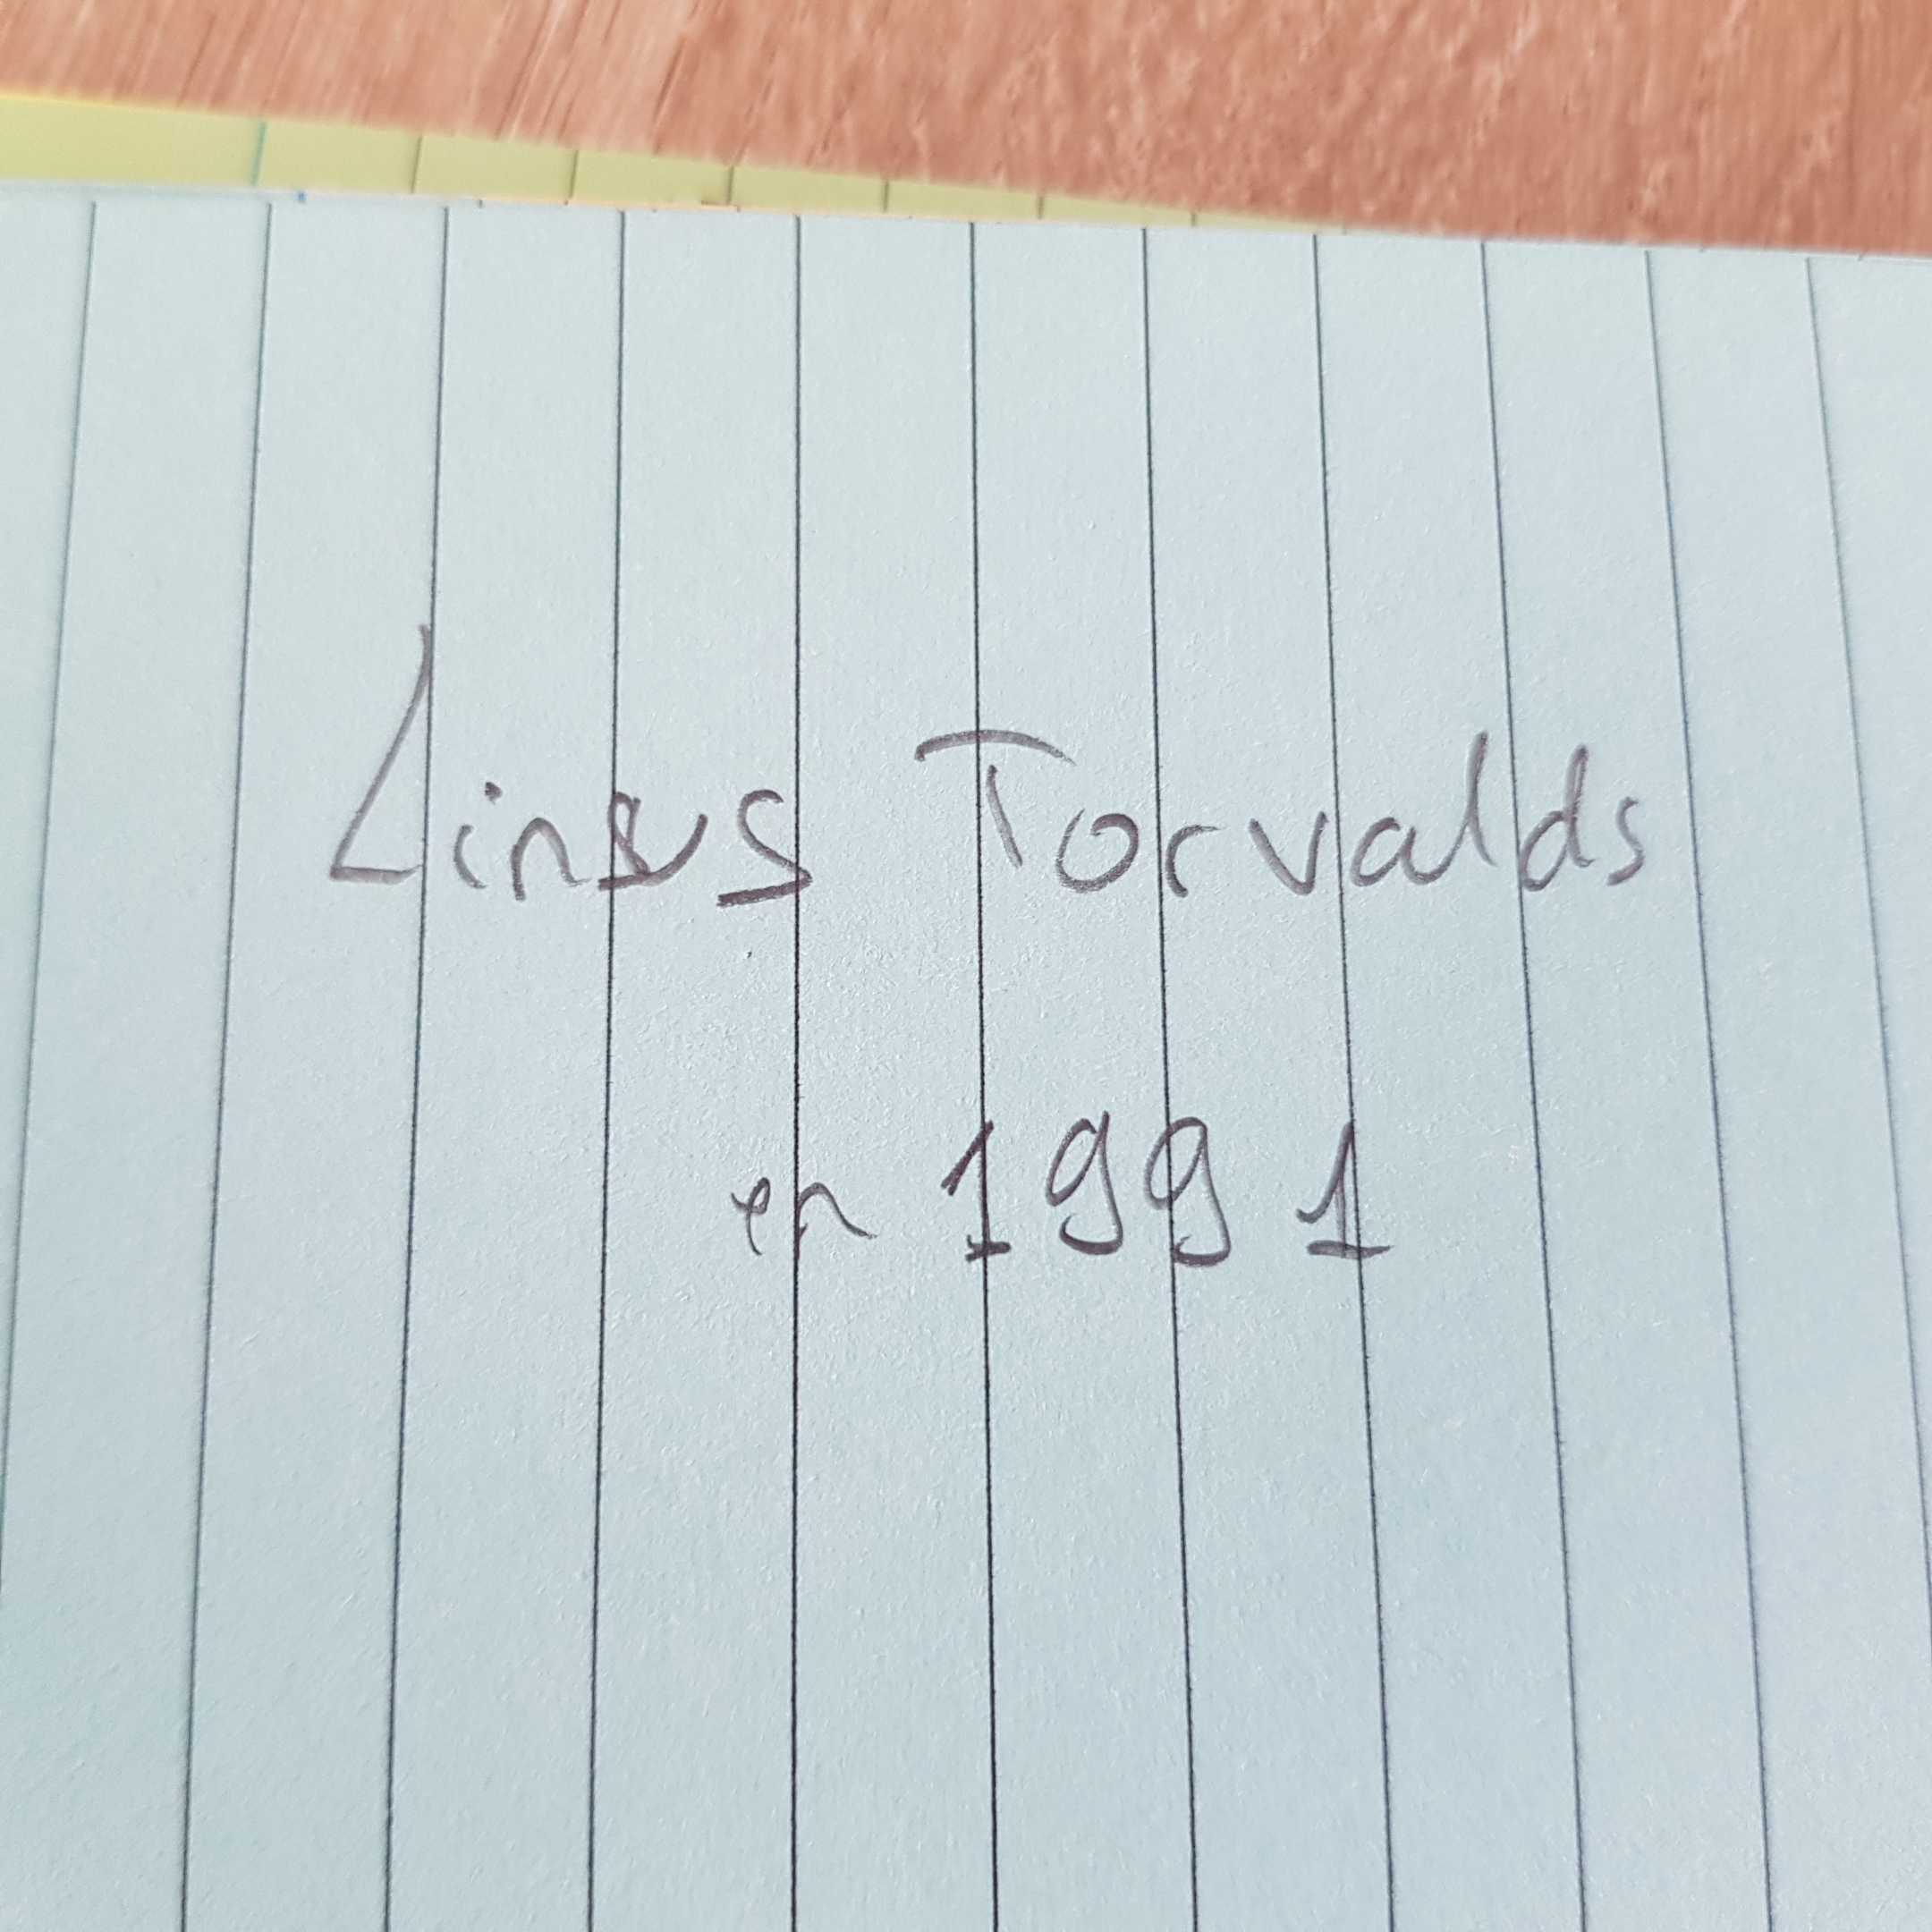 Linus Torvalds
en 1991